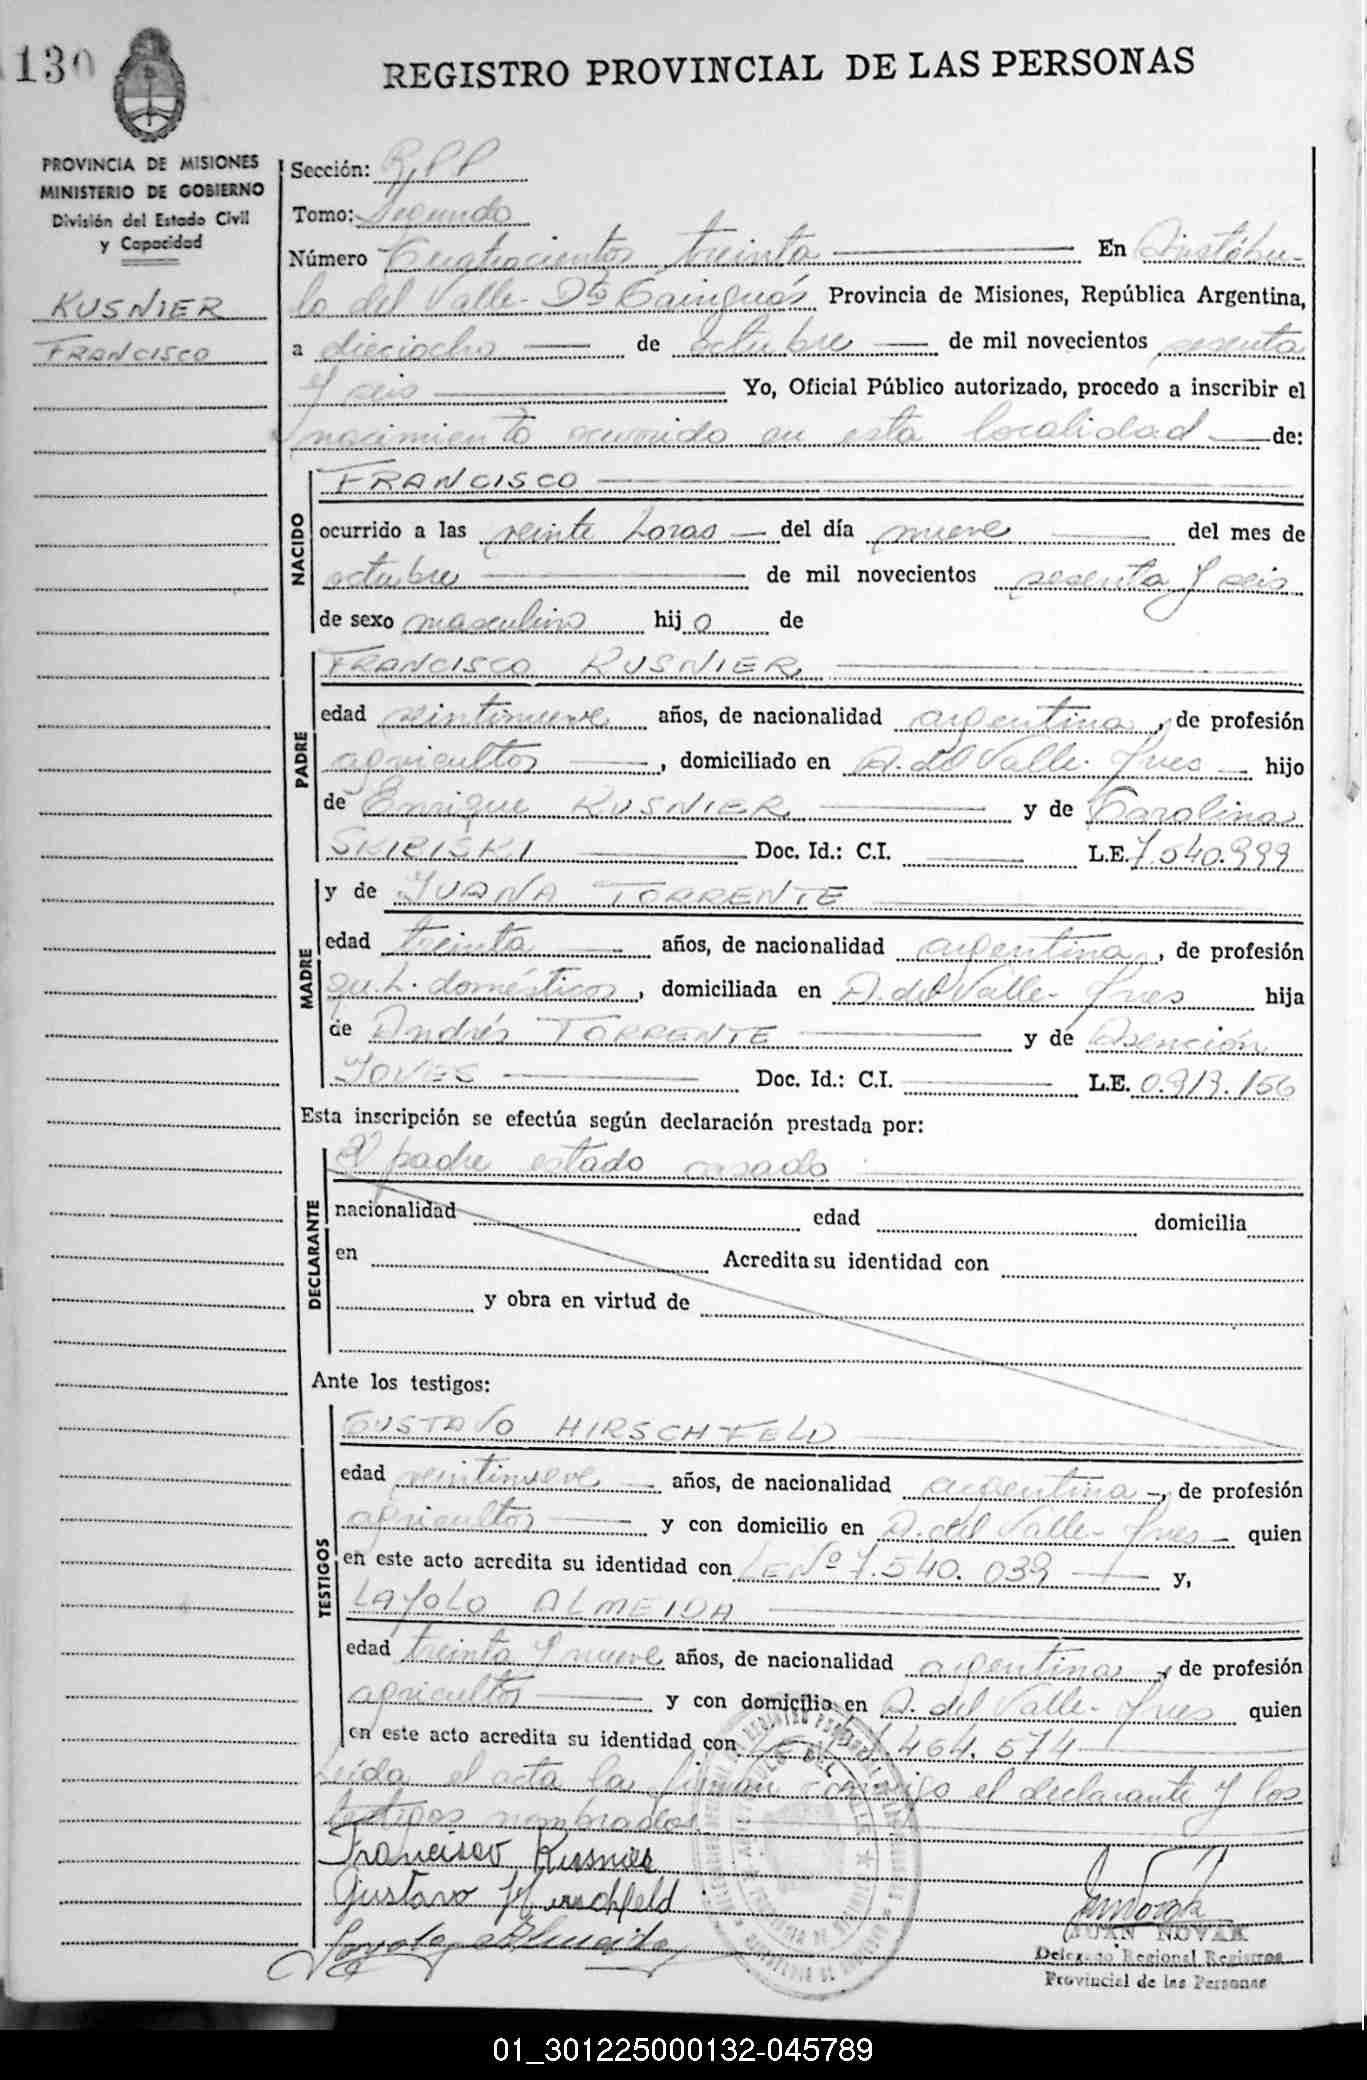 130
REGISTRO PROVINCIAL DE LAS PERSONAS
PROVINCIA DE MISIONES
MINISTERIO DE GOBIERNO
División del Estado Civil
y Capacidad
KUSNIER
FRANCISCO
Sección:
Tomo: Segundo
Número Cuatrocientos treinta En Aristóbu-
lo del Valle - Dto Cainguás Provincia de Misiones, República Argentina,
a dieciocho de octubre de mil novecientos sesenta
y seis Yo, Oficial Público autorizado, procedo a inscribir el
nacimiento ocurrido en esta localidad de:
NACIDO
FRANCISCO
ocurrido a las veinte horas del día nueve del mes de
octubre de mil novecientos sesenta y seis
de sexo masculino hijo de
PADRE
FRANCISCO KUSNIER
edad veintinueve años, de nacionalidad argentina, de profesión
agricultor, domiciliado en A. del Valle - Mnes hijo
de Enrique KUSNIER y de Carolina
Doc. Id.: C.I. L.E. 7.540.999
MADRE
y de JUANA TORRENTE
edad treinta años, de nacionalidad argentina, de profesión
qu.h. domésticos, domiciliada en A. del Valle - Mnes hija
de Andrés TORRENTE y de Asención
Doc. Id.: C.I. L.E. 0.919.156
Esta inscripción se efectúa según declaración prestada por:
DECLARANTE
El padre estado casado
nacionalidad edad domicilia
en Acredita su identidad con
y obra en virtud de
Ante los testigos:
TESTIGOS
GUSTAVO HIRSCHFELD
edad veintinueve años, de nacionalidad argentina, de profesión
agricultor y con domicilio en A. del Valle - Mnes quien
en este acto acredita su identidad con LE Nº 7.540.039 y,
LAYOLO ALMEIDA
edad treinta y nueve años, de nacionalidad argentina, de profesión
agricultor y con domicilio en A. del Valle - Mnes quien
en este acto acredita su identidad con 464.574
Leída el acta la firman conmigo el declarante y los
testigos nombrados
Francisco Kusnier
Gustavo Hirschfeld
Almeida
JUAN NOVAK
Delegado Regional Registros
Provincial de las Personas
01_301225000132-045789